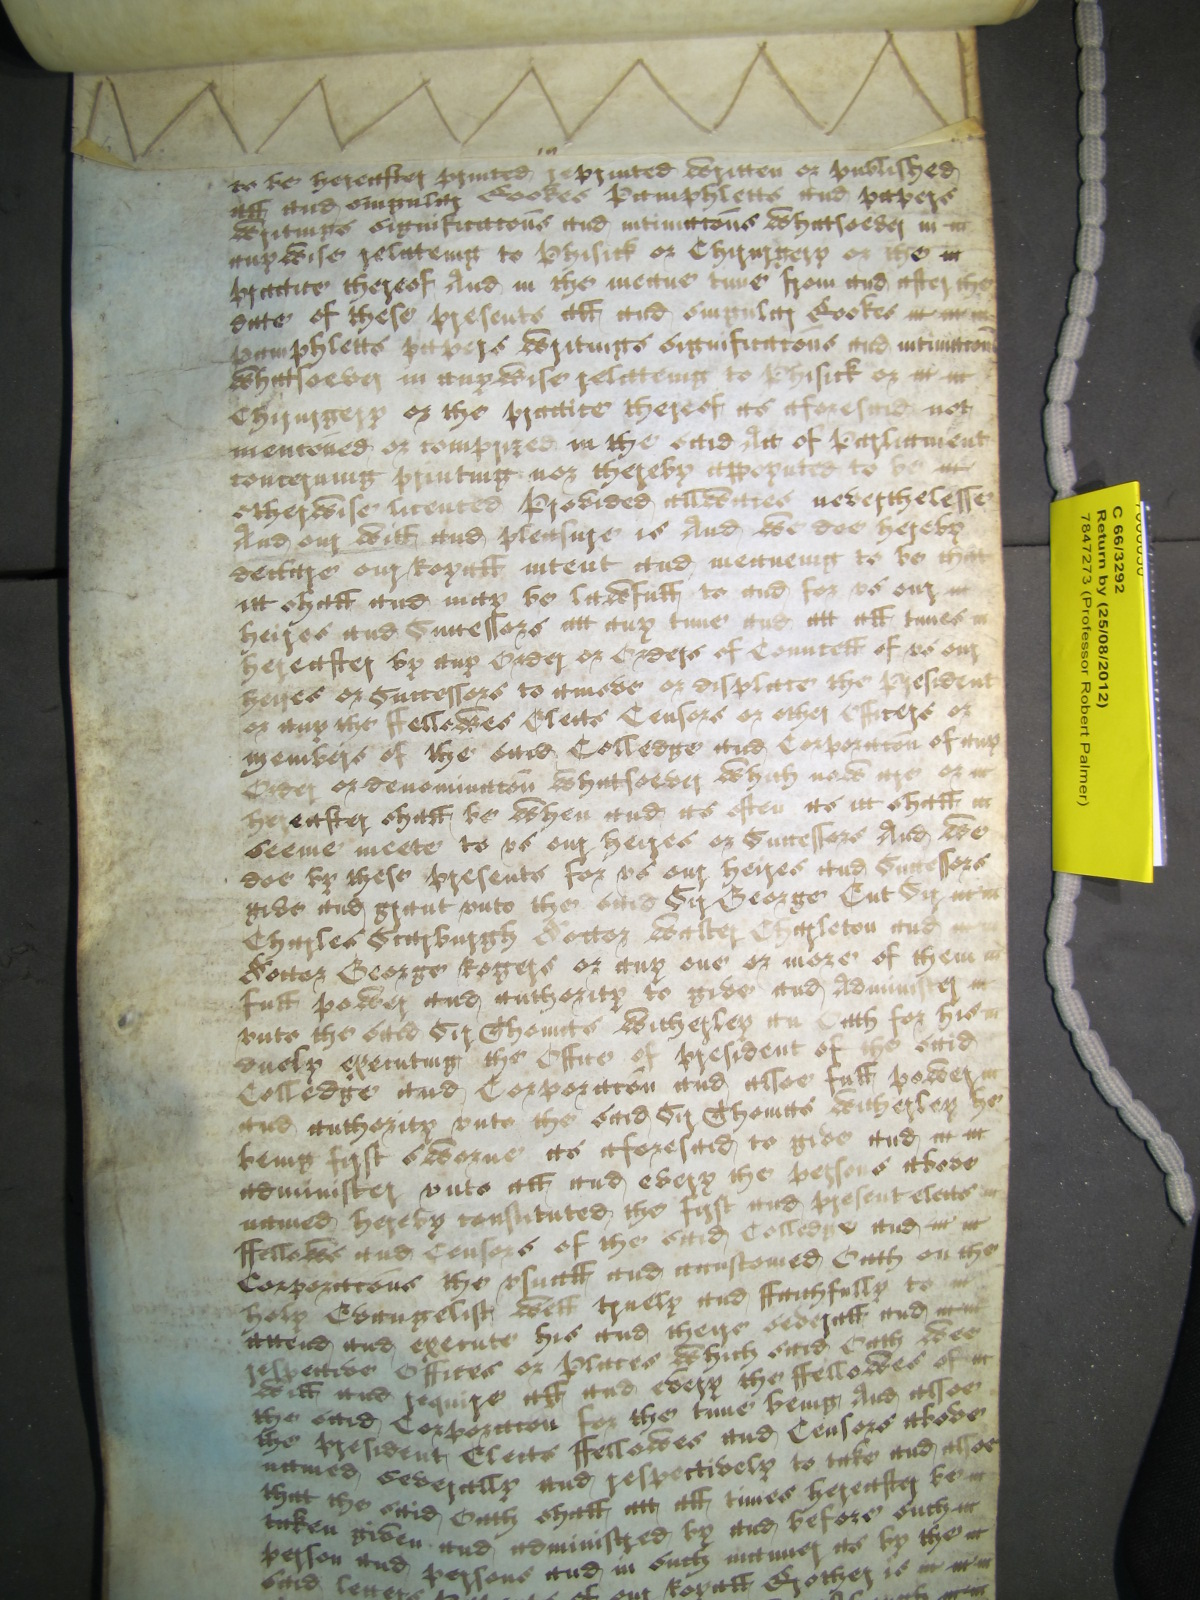 to be hereafter printed reprinted written or published
all and singular Bookes Pamphletts and papers
writings significations and intimations whatsoever in
anywise relateing to Phisick or Chyrurgery or the
practice thereof And in the meane time from and after the
date of these presents all and singular Bookes
pamphletts papers writings significations and intimations
whatsoever in anywise relateing to Phisick or
Chyrurgery or the practice thereof as aforesaid not
menconed or comprized in the said Act of Parliament
concerning printing nor thereby appoynted to be
otherwise licenced Provided allwaies neverthelesse
And our will and pleasure is And we doe hereby
declare our Royall intent and meaneing to be that
itt shall and may be lawfull to and for vs our
heires and Successors att any time and att all times
hereafter by any Order or Orders of Councell of vs our
heires or Successors to amove or displace the President
or any the ffellowes Elects Censors or other Officers or
members of the said Colledge and Corporation of any
Order or denomination whatsoever which now are or
hereafter shall be when and as often as itt shall
seeme meete to vs our heires or Successors And We
doe by these presents for vs our heires and Successors
give and graunt vnto the said Sir George Ent Sir
Charles Scarburgh Doctor Walter Charleton and
Doctor George Rogers or any one or more of them
full power and authority to give and Administer
vnto the said Sir Thomas Witherley an Oath for his
duely executing the Office of President of the said
Colledge and Corporation and alsoe full power
and authority vnto the said Sir Thomas Witherley he
being first sworne as aforesaid to give and
administer vnto all and every the persons above
named hereby constituted the first and present elects
ffellows and Censors of the said Colledge and
Corporations the vsuall and accustomed Oath on the
holy Evangelist well truely and ffaithfully to
attend and execute his and theire severall and
respective Offices or Places which said Oath Wee
will and require all and every the ffellowes of
the said Corporation for the time being And alsoe
the president Elects ffellowes and Censors above
named severally and respectively to take and alsoe
that the said Oath shall att all times hereafter be
taken given and administred by and before such
person and persons and in such manner as by the
said letters of our Royall Brother is